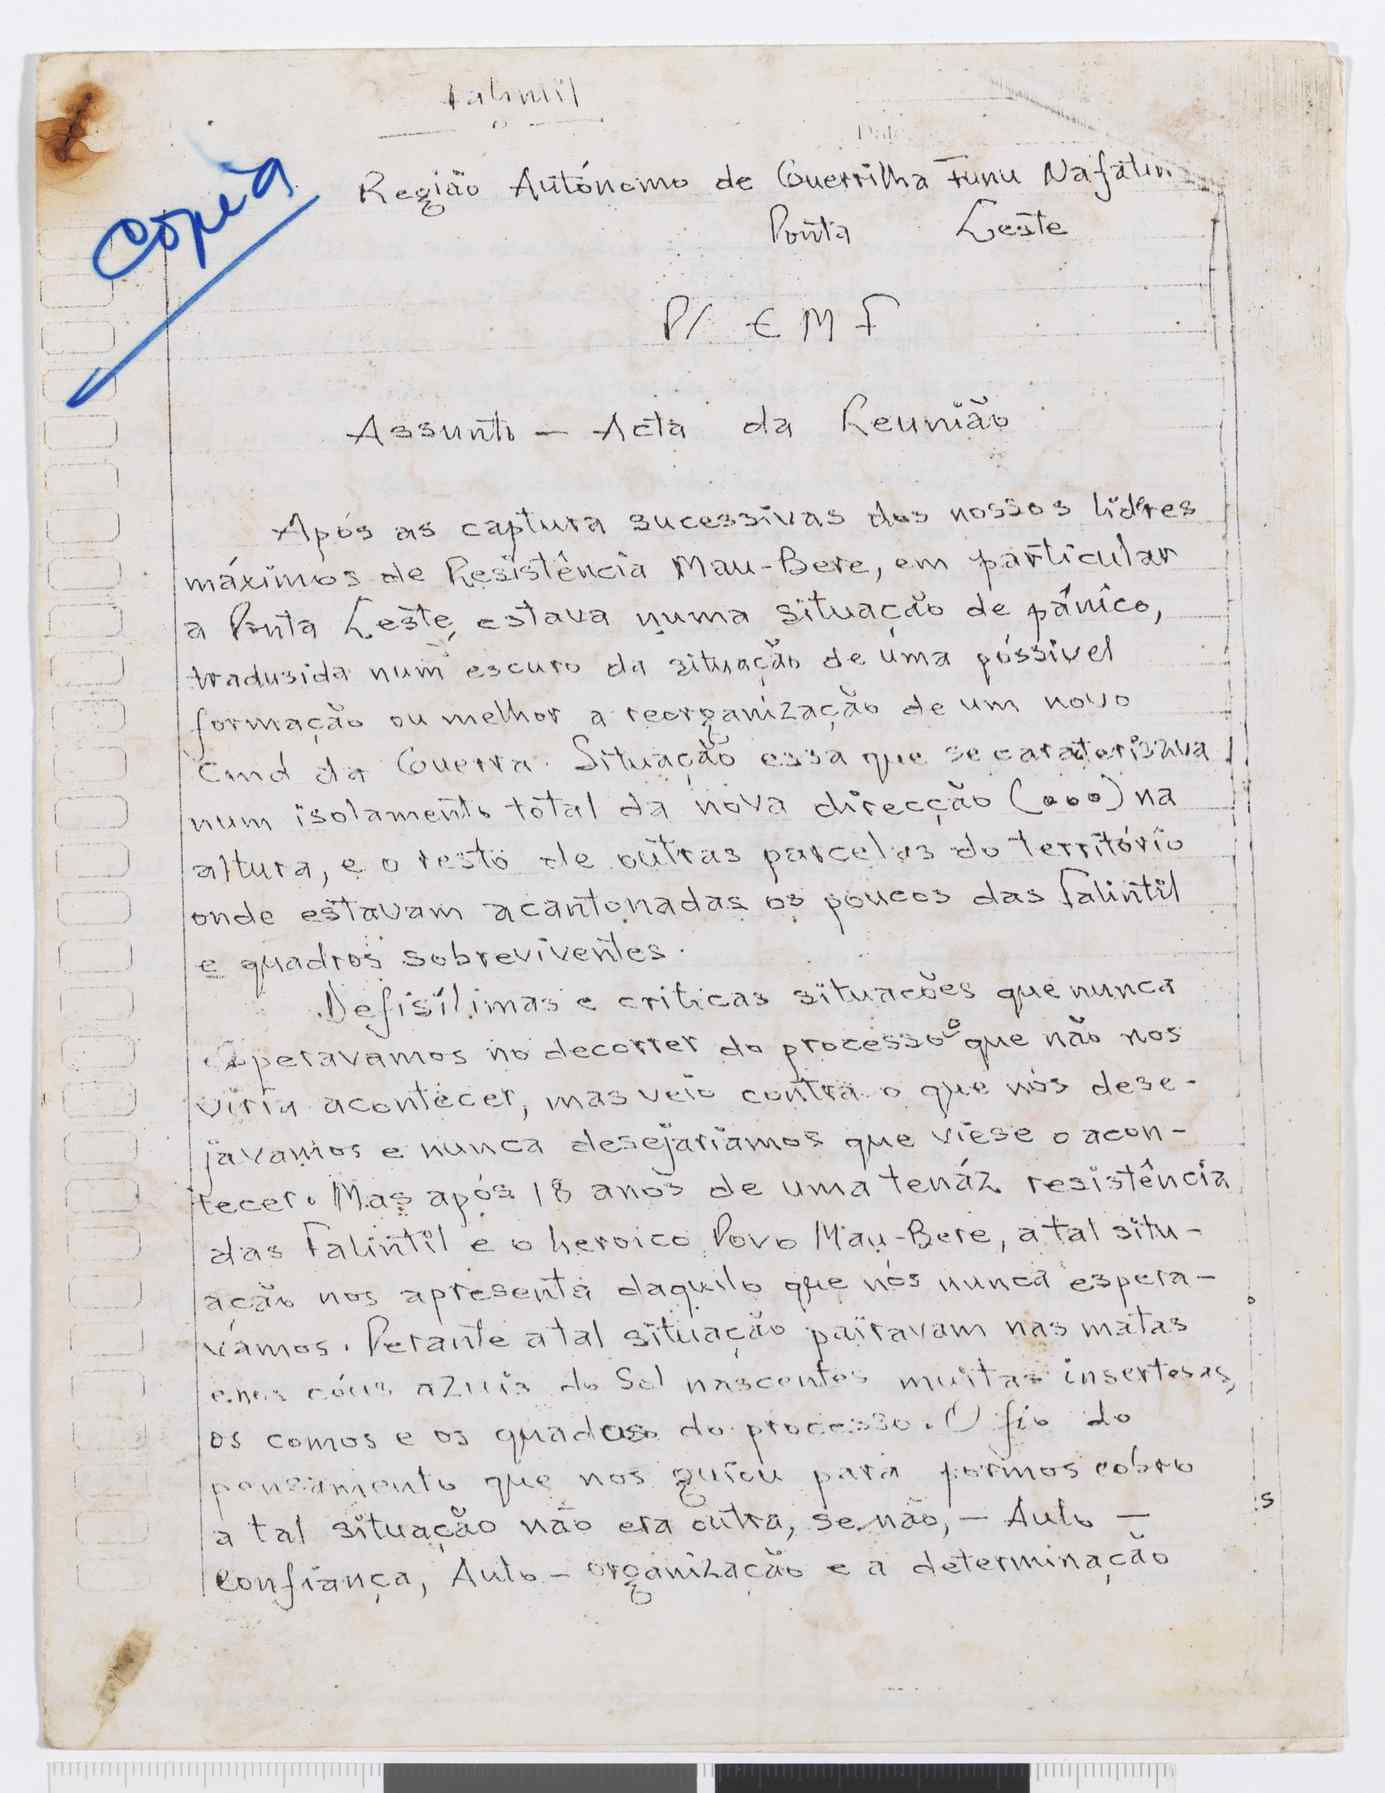 Falintil
Copia
Região Autónomo de Guerrilha Funu Nafatin
Ponta Leste
P/ E M F
Assunto — Acta da Reunião
Após as captura sucessivas dos nossos lideres
máximos de Resistência Mau-Bere, em particular
a Ponta Leste, estava numa situação de pânico,
tradusida num escuro da situação de uma póssivel
formação ou melhor a reorganização de um novo
Cmd da Guerra. Situação essa que se caraterisava
num isolamento total da nova direcção (...) na
altura, e o resto de outras parcelas do território
onde estavam acantonadas os poucos das Falintil
e quadros sobreviventes.
Defisílimas e criticas situacões que nunca
operavamos no decorrer do processo que não nos
viria acontecer, mas veio contra o que nós dese-
javamos e nunca desejariamos que viese o acon-
tecer. Mas após 18 anos de uma tenáz resistência
das Falintil e o heroico Povo Mau-Bere, a tal situ-
ação nos apresenta daquilo que nós nunca espera-
vamos. Perante a tal situação pairavam nas matas
e nos céus azuis do Sol nascentes muitas insertesas,
os comos e os quados do processo. O fio do
pensamento que nos guiou para pormos cobro
a tal situação não era outra, se não, — Auto —
Confiança, Auto — organização e a determinação
s